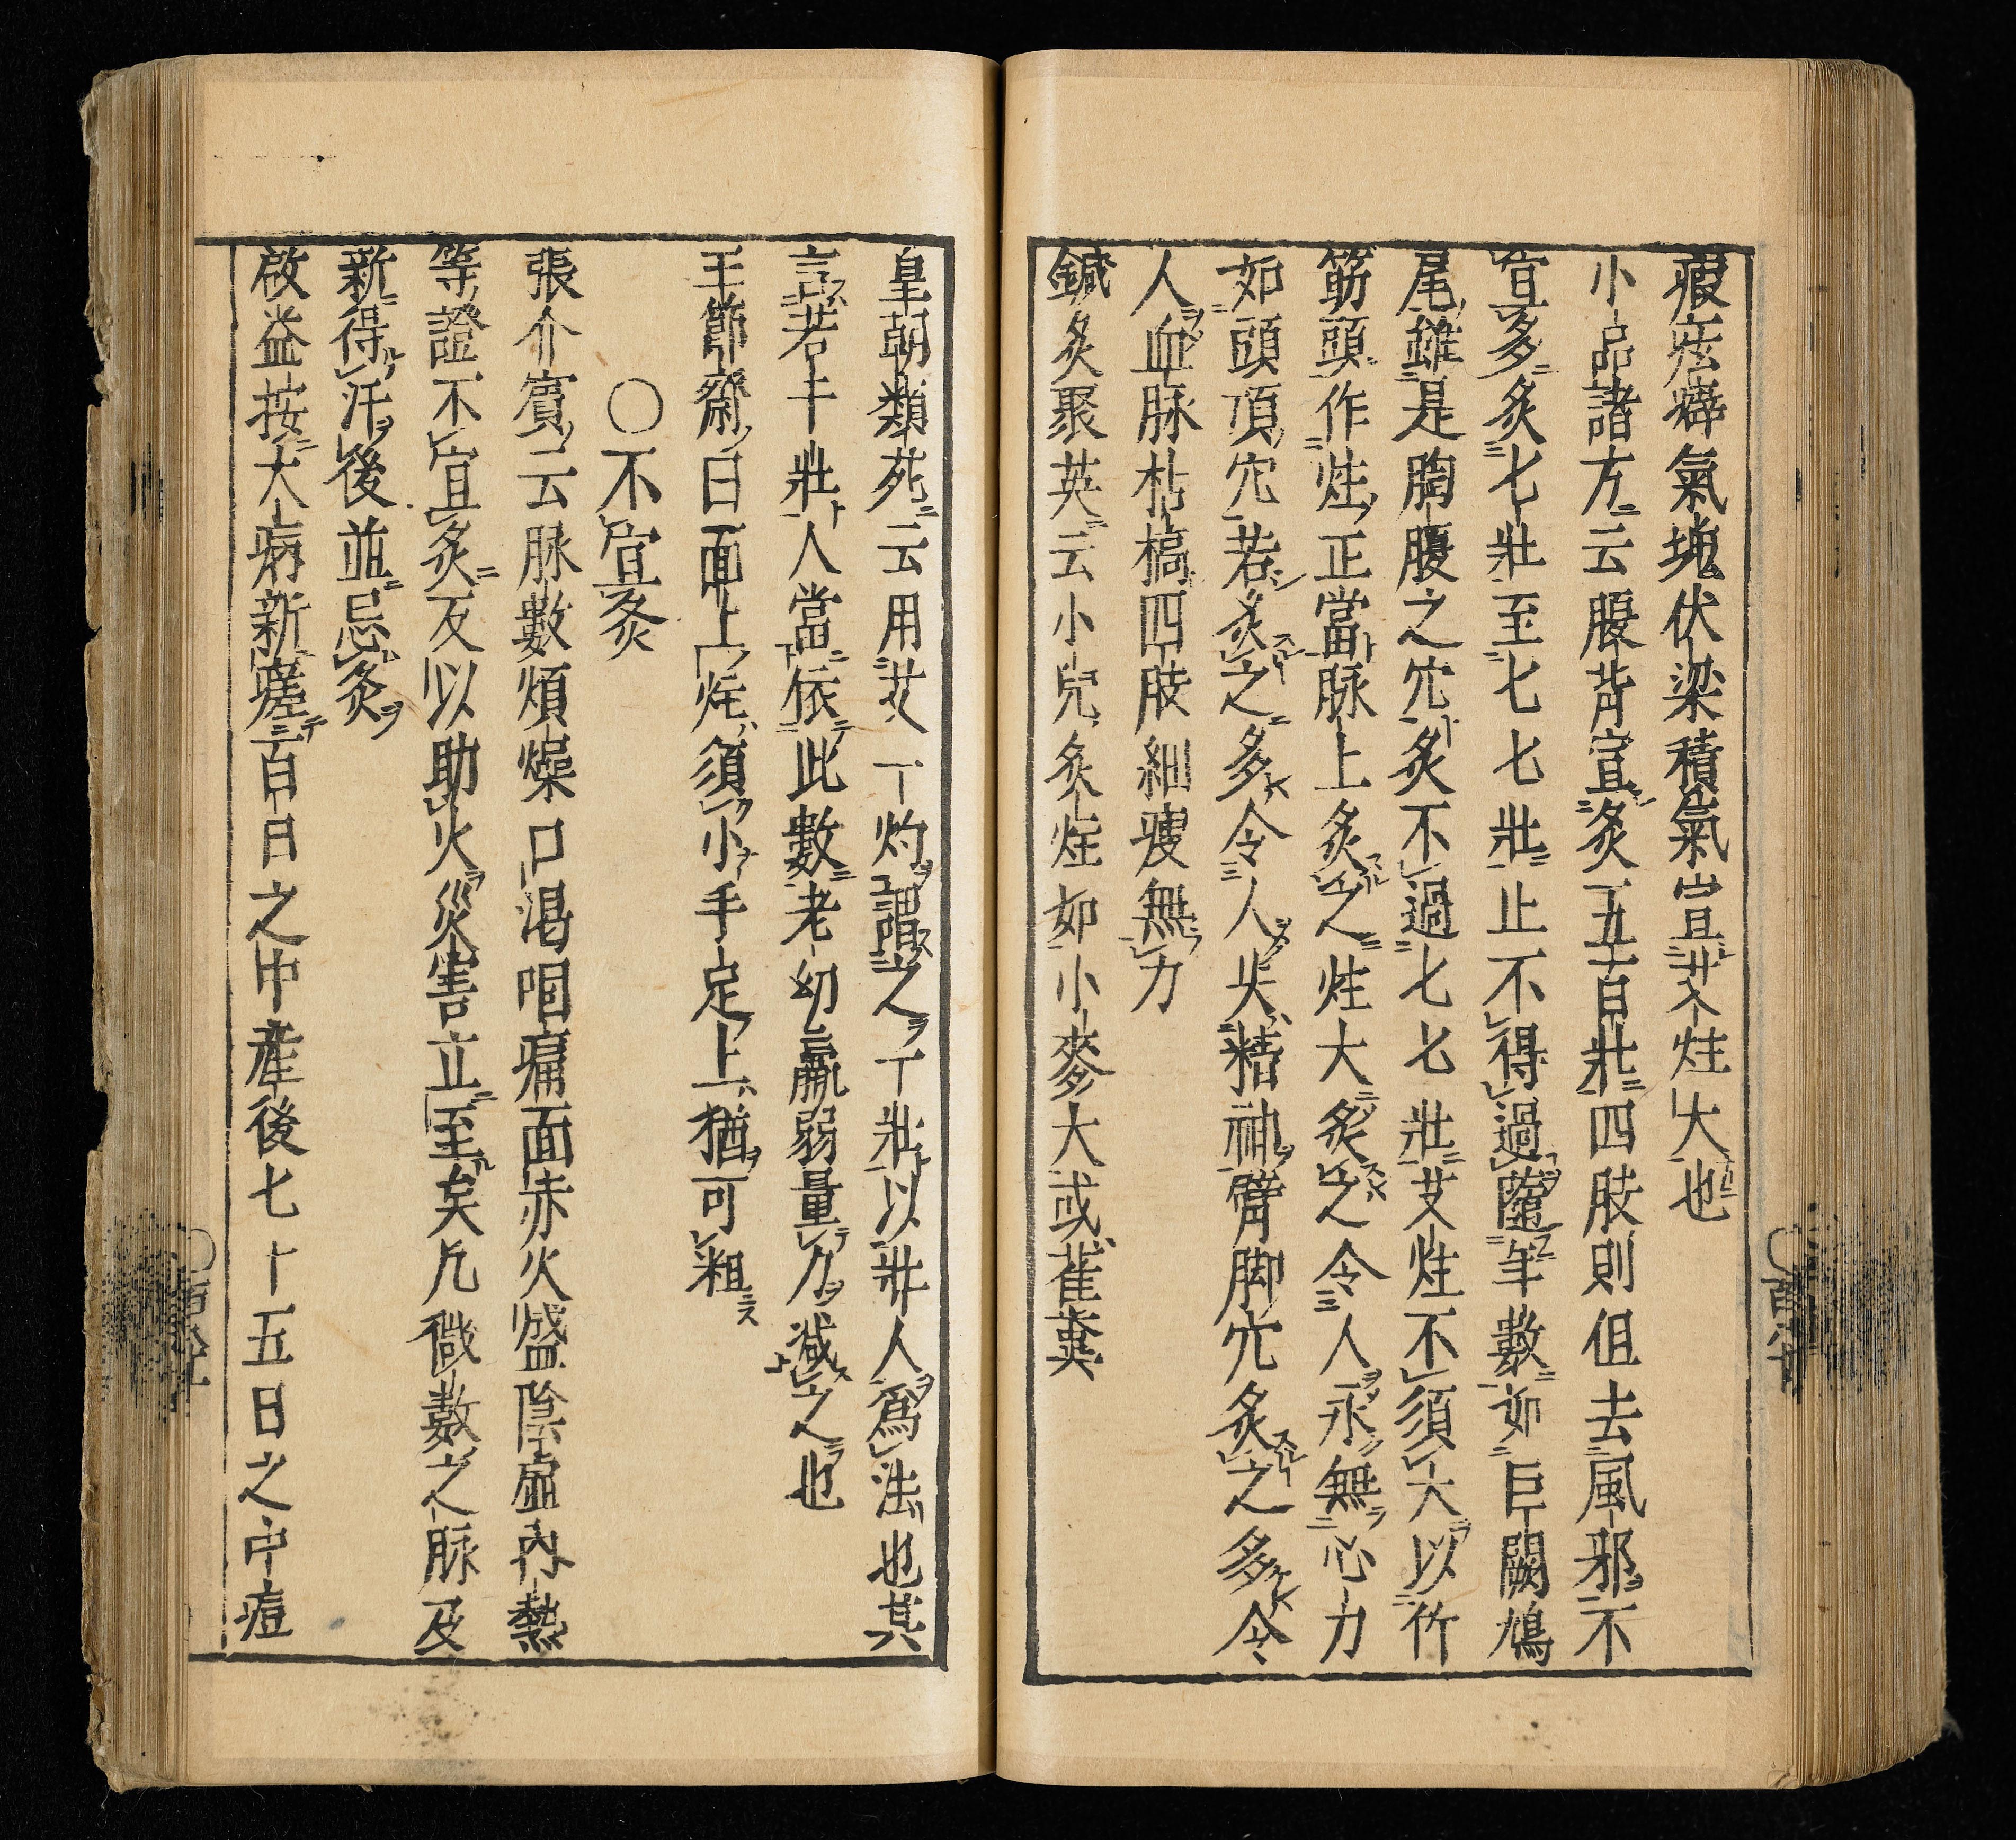 瘕痃癖氣塊伏梁積氣宜艾炷大也
小品諸方云腹背宜灸五百壯四肢則但去風邪不
宜多灸七壯至七七壯止不得過隨年數如巨闕鳩
尾雖是胸腹之穴灸不過七七壯艾炷不須大以竹
筯頭作炷正當脉上灸之炷大灸之令人永無心力
如頭頂穴若灸之多令人失精神臂脚穴灸之多令
人血脉枯槁四肢細瘦無力
鍼灸聚英云小兒灸炷如小麥大或雀糞
皇朝類苑云用艾一灼謂之一壯以壯人爲法也其
言若干壯人當依此數老幼羸弱量力減之也
王節齋曰面上炷須小手足上猶可粗
○不宜灸
張介賓云脉數煩燥口渴咽痛面赤火盛陰虛內熱
等證不宜灸反以助火災害立至矣凡微數之脉及
新得汗後並忌灸
啟益按大病新瘥百日之中產後七十五日之中痘